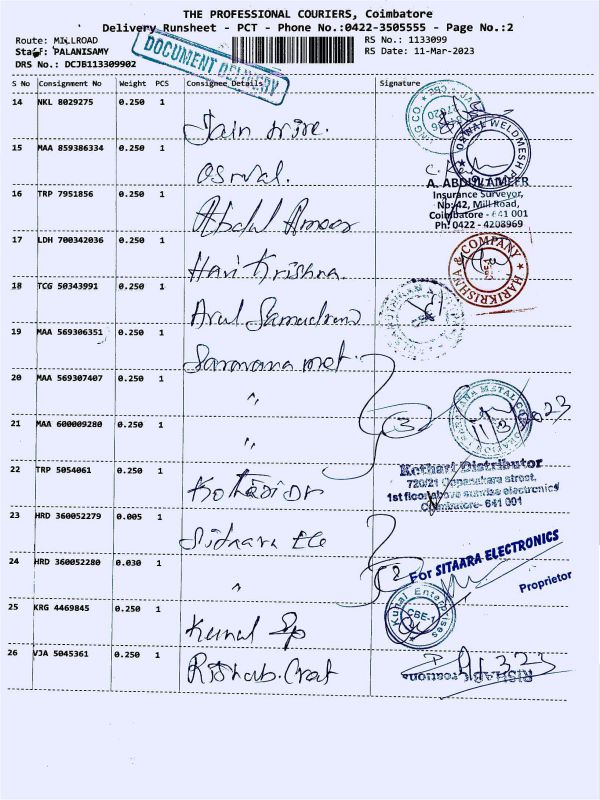 THE PROFESSIONAL COURIERS, Coimbatore
Delivery Runsheet - PCT - Phone No.:0422-3505555 - Page No.:2
Route: MILLROAD
Staff: PALANISAMY
DRS No.: DCJB113309902
DOCUMENT DELIVERY
RS No.: 1133099
RS Date: 11-Mar-2023
S No Consignment No Weight PCS Consignee Details Signature
14 NKL 8029275 0.250 1
Jain wire.
15 MAA 859386334 0.250 1
OSWAL WELDMESH P
Oswal.
16 TRP 7951856 0.250 1
Abdul Ameer
A. ABDUL AMEER
Insurance Surveyor,
No: 42, Mill Road,
Coimbatore - 641 001
Ph: 0422 - 4208969
17 LDH 700342036 0.250 1
Hari Krishna.
HARIKRISHNA & COMPANY
18 TCG 50343991 0.250 1
Arul
19 MAA 569306351 0.250 1
Saravana met.
20 MAA 569307407 0.250 1
"
21 MAA 600009280 0.250 1
"
3
11/3/2023
22 TRP 5054061 0.250 1
Kothari Dr
Kothari Distributor
720/21 Oppanakara street,
1st floor above sunrise electronics
Coimbatore- 641 001
23 HRD 360052279 0.005 1
Sitaara Ele
24 HRD 360052280 0.030 1
"
2
For SITAARA ELECTRONICS
Proprietor
25 KRG 4469845 0.250 1
Kunal
Kunal Enterprises
CBE-1
26 VJA 5045361 0.250 1
Rishab. Creat
RISHAB Creations